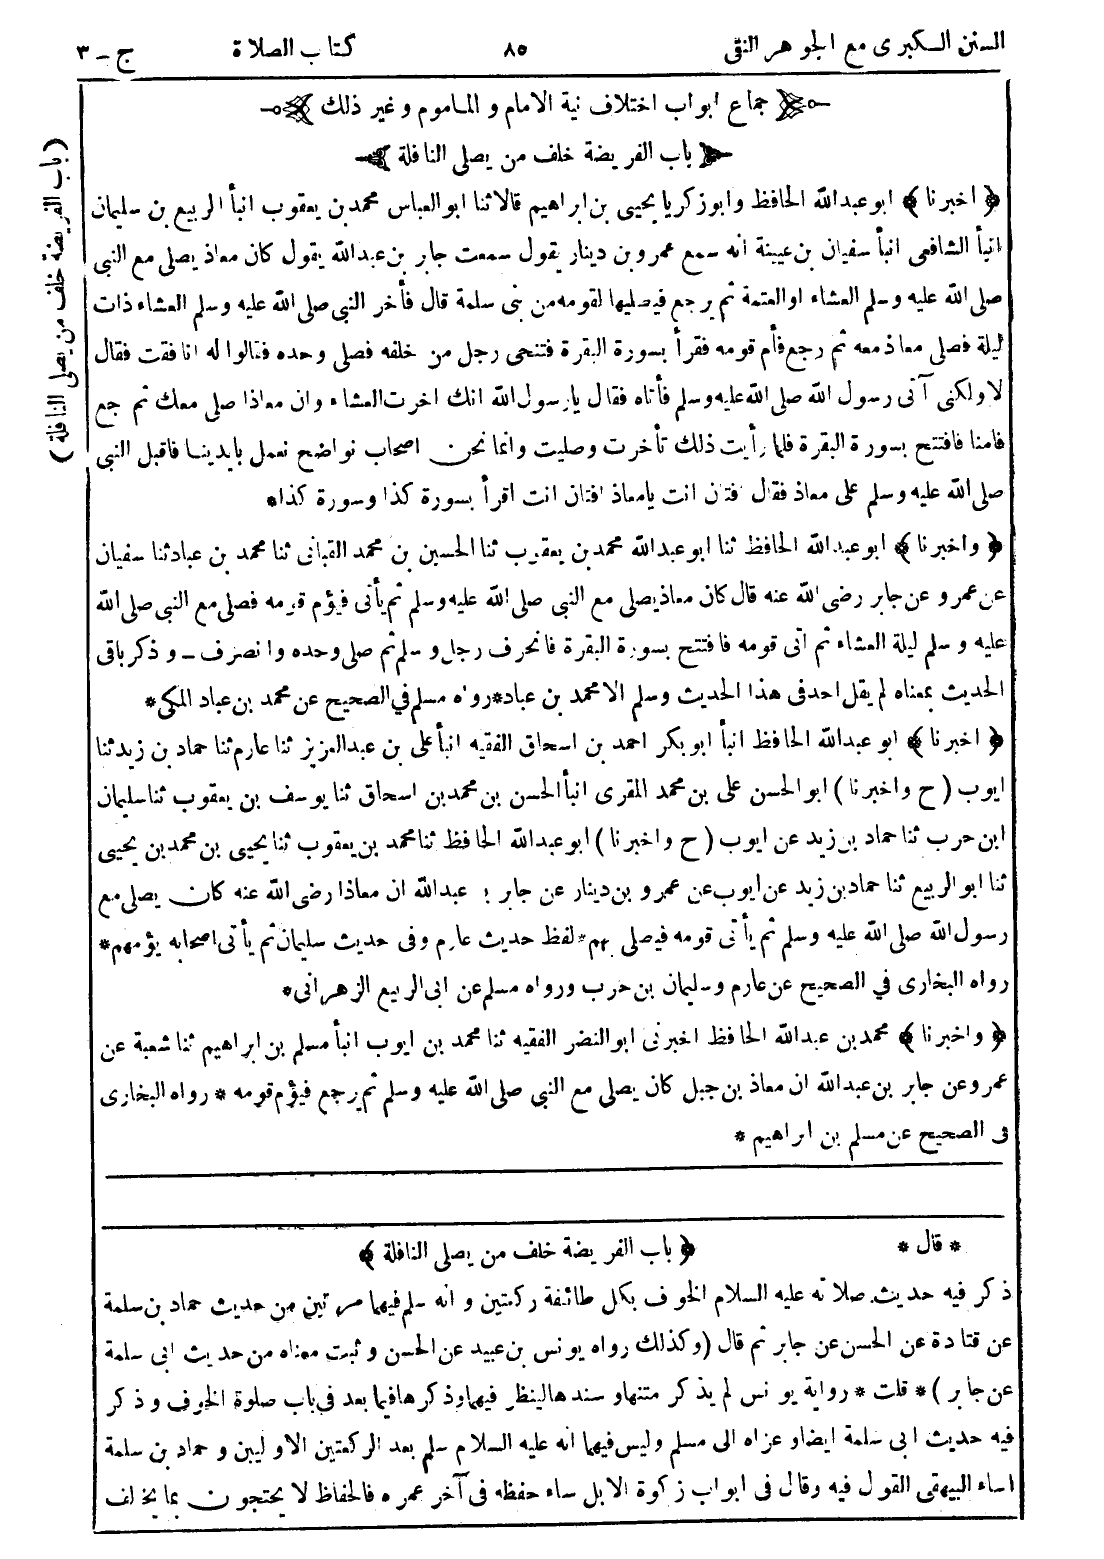 السنن الكبرى مع الجوهر النقى ٨٥ كتاب الصلاة ج - ٣
جماع ابواب اختلاف نية الامام و الماموم و غير ذلك
باب الفريضة خلف من يصلى النافلة
(باب الفريضة خلف من يصلى النافلة)
﴿ اخبرنا ﴾ ابوعبدالله الحافظ وابوزكريا يحيى بن ابراهيم قالا ثنا ابوالعباس محمد بن يعقوب انبأ الربيع بن سليمان
انبأ الشافعى انبأ سفيان بن عيينة انه سمع عمرو بن دينار يقول سمعت جابر بن عبدالله يقول كان معاذ يصلى مع النبى
صلى الله عليه وسلم العشاء او العتمة ثم يرجع فيصليها لقومه من بنى سلمة قال فأخر النبى صلى الله عليه وسلم العشاء ذات
ليلة فصلى معاذ معه ثم رجع فأم قومه فقرأ بسورة البقرة فتنحى رجل من خلفه فصلى وحده فقالوا له انافقت فقال
لا ولكنى آتى رسول الله صلى الله عليه وسلم فأتاه فقال يا رسول الله انك اخرت العشاء وان معاذا صلى معك ثم رجع
فامنا فافتتح بسورة البقرة فلما رأيت ذلك تأخرت وصليت وانما نحن اصحاب نواضح نعمل بايدينا فاقبل النبى
صلى الله عليه وسلم على معاذ فقال افتان انت يامعاذ افتان انت اقرأ بسورة كذا وسورة كذا*
﴿ واخبرنا ﴾ ابوعبدالله الحافظ ثنا ابوعبدالله محمد بن يعقوب ثنا الحسين بن محمد القبانى ثنا محمد بن عباد ثنا سفيان
عن عمرو عن جابر رضى الله عنه قال كان معاذ يصلى مع النبى صلى الله عليه وسلم ثم يأتى فيؤم قومه فصلى مع النبى صلى الله
عليه وسلم ليلة العشاء ثم اتى قومه فافتتح بسورة البقرة فانحرف رجل وسلم ثم صلى وحده وانصرف - وذكر باقى
الحديث بمعناه لم يقل احد فى هذا الحديث وسلم الا محمد بن عباد*رواه مسلم في الصحيح عن محمد بن عباد المكى*
﴿ اخبرنا ﴾ ابو عبدالله الحافظ انبأ ابوبكر احمد بن اسحاق الفقيه انبأ على بن عبدالعزيز ثنا عارم ثنا حماد بن زيد ثنا
ايوب (ح واخبرنا) ابوالحسن على بن محمد المقرى انبأ الحسن بن محمد بن اسحاق ثنا يوسف بن يعقوب ثنا سليمان
ابن حرب ثنا حماد بن زيد عن ايوب (ح واخبرنا) ابوعبدالله الحافظ ثنا محمد بن يعقوب ثنا يحيى بن محمد بن يحيى
ثنا ابو الربيع ثنا حماد بن زيد عن ايوب عن عمرو بن دينار عن جابر بن عبدالله ان معاذا رضى الله عنه كان يصلى مع
رسول الله صلى الله عليه وسلم ثم يأتى قومه فيصلى بهم*لفظ حديث عارم وفى حديث سليمان ثم يأتى اصحابه يؤمهم*
رواه البخارى في الصحيح عن عارم وسليمان بن حرب ورواه مسلم عن ابى الربيع الزهرانى*
﴿ واخبرنا ﴾ محمد بن عبدالله الحافظ اخبرنى ابوالنضر الفقيه ثنا محمد بن ايوب انبأ مسلم بن ابراهيم ثنا شعبة عن
عمرو عن جابر بن عبدالله ان معاذ بن جبل كان يصلى مع النبى صلى الله عليه وسلم ثم يرجع فيؤم قومه * رواه البخارى
فى الصحيح عن مسلم بن ابراهيم *
* قال * ﴿ باب الفريضة خلف من يصلى النافلة ﴾
ذكر فيه حديث صلاته عليه السلام الخوف بكل طائفة ركعتين و انه سلم فيهما مرتين من حديث حماد بن سلمة
عن قتادة عن الحسن عن جابر ثم قال (وكذلك رواه يونس بن عبيد عن الحسن و ثبت معناه من حديث ابى سلمة
عن جابر) * قلت * رواية يونس لم يذكر متنها و سندها لينظر فيهما وذكرها فيما بعد فى باب صلوة الخوف و ذكر
فيه حديث ابى سلمة ايضا و عزاه الى مسلم وليس فيهما انه عليه السلام سلم بعد الركعتين الاوليين و حماد بن سلمة
اساء البيهقى القول فيه وقال فى ابواب زكوة الابل ساء حفظه فى آخر عمره فالحفاظ لا يحتجون بما يخالف